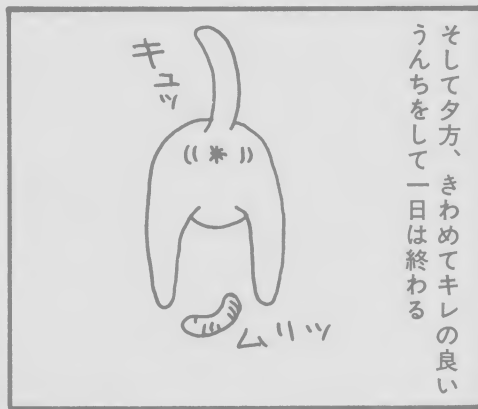 そして夕方、きわめてキレの良い
うんちをして一日は終わる
キュッ
ムリッ